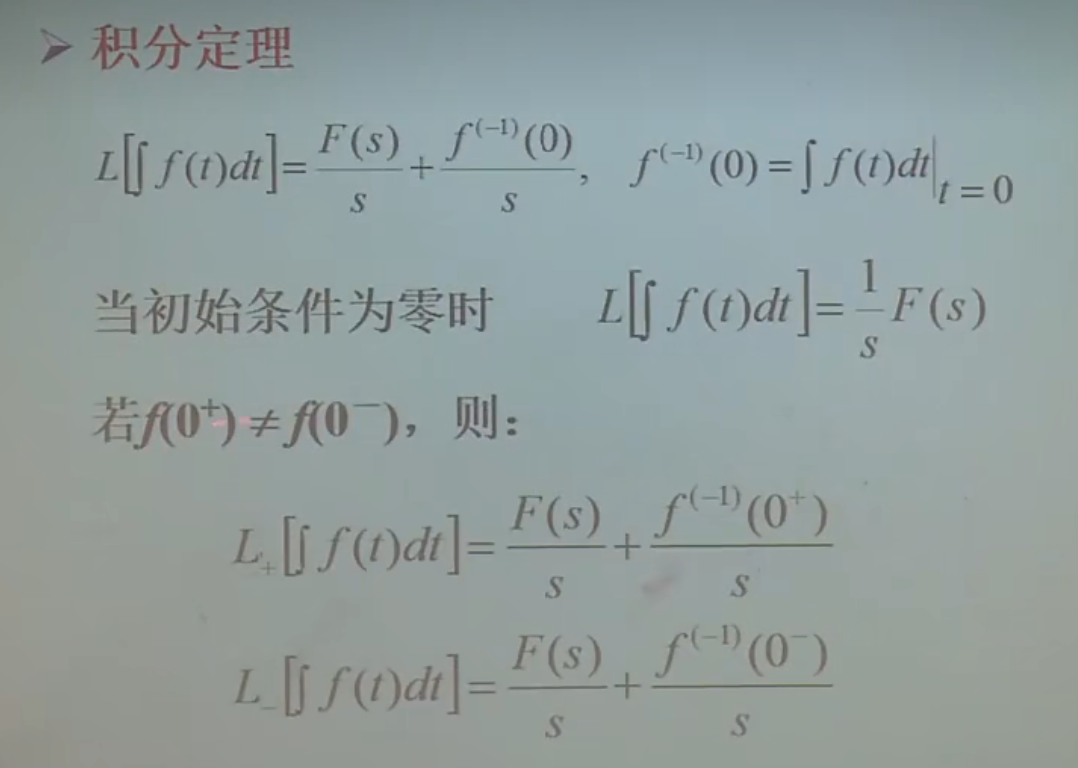 ➢ 积分定理
L[∫ f(t)dt] = F(s)/s + f⁽⁻¹⁾(0)/s, f⁽⁻¹⁾(0) = ∫ f(t)dt|t = 0
当初始条件为零时 L[∫ f(t)dt] = 1/s F(s)
若f(0⁺) ≠ f(0⁻)，则：
L₊[∫ f(t)dt] = F(s)/s + f⁽⁻¹⁾(0⁺)/s
L₋[∫ f(t)dt] = F(s)/s + f⁽⁻¹⁾(0⁻)/s